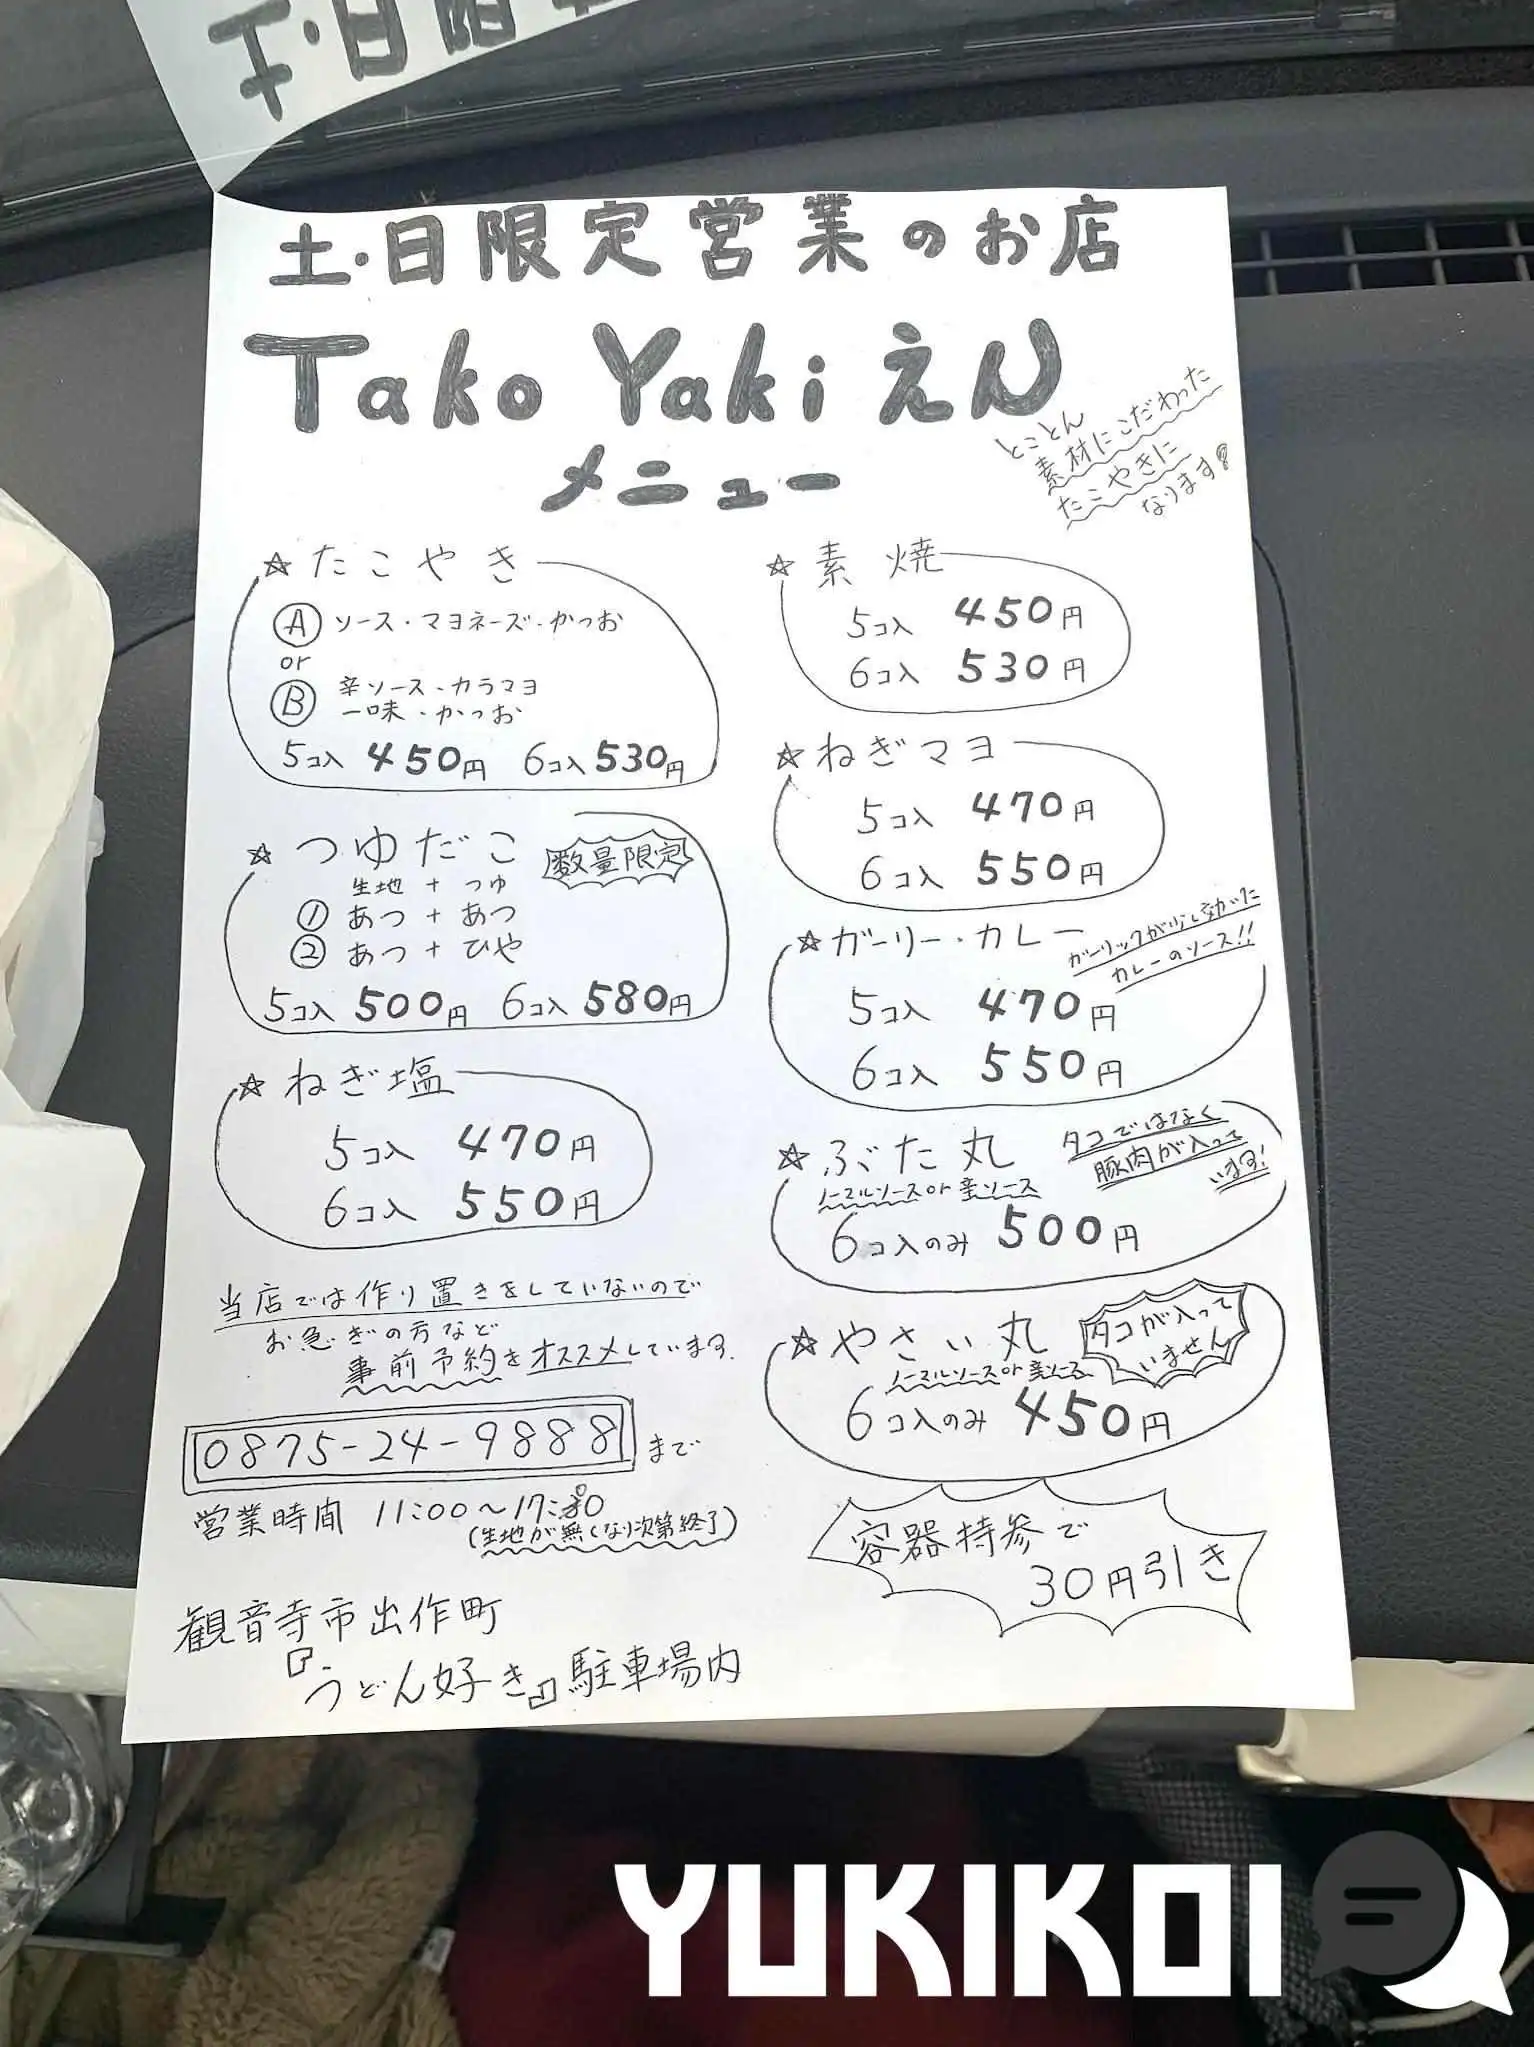 土・日限
土・日限定営業のお店
Tako Yaki えん
メニュー
とことん
素材にこだわった
たこやきに
なります
☆たこやき
Ⓐ ソース・マヨネーズ・かつお
or
Ⓑ 辛ソース・カラマヨ
一味・かつお
5コ入 450円 6コ入 530円
☆つゆだこ
数量限定
生地 + つゆ
① あつ + あつ
② あつ + ひや
5コ入 500円 6コ入 580円
☆ねぎ塩
5コ入 470円
6コ入 550円
当店では作り置きをしていないので
お急ぎの方など
事前予約をオススメしています.
0875-24-9888 まで
営業時間 11:00〜17:
(生地が無くなり次第終了)
観音寺市出作町
『うどん好き』駐車場内
☆素焼
5コ入 450円
6コ入 530円
☆ねぎマヨ
5コ入 470円
6コ入 550円
☆ガーリー・カレー
ガーリックが少し効いた
カレーのソース!!
5コ入 470円
6コ入 550円
☆ぶた丸
タコではなく
豚肉が入って
います!
ノーマルソースor辛ソース
6コ入のみ 500円
☆やさい丸
タコが入って
いません
ノーマルソースor辛ソース
6コ入のみ 450円
容器持参で
30円引き
YUKIKOI